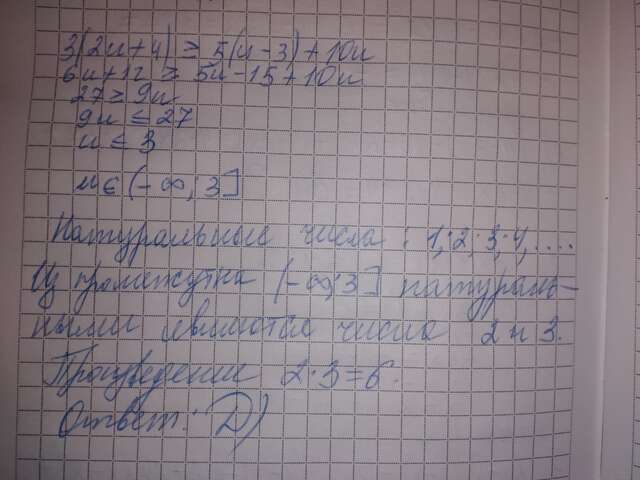 3(2u+4) ≥ 5(u-3)+10u
6u+12 ≥ 5u-15+10u
27 ≥ 9u
9u ≤ 27
u ≤ 3
u ∈ (-∞; 3]
Натуральные числа: 1; 2; 3; 4, ....
Из промежутка (-∞; 3] натураль-
ными являются числа 2 и 3.
Произведение 2·3=6.
Ответ: D)